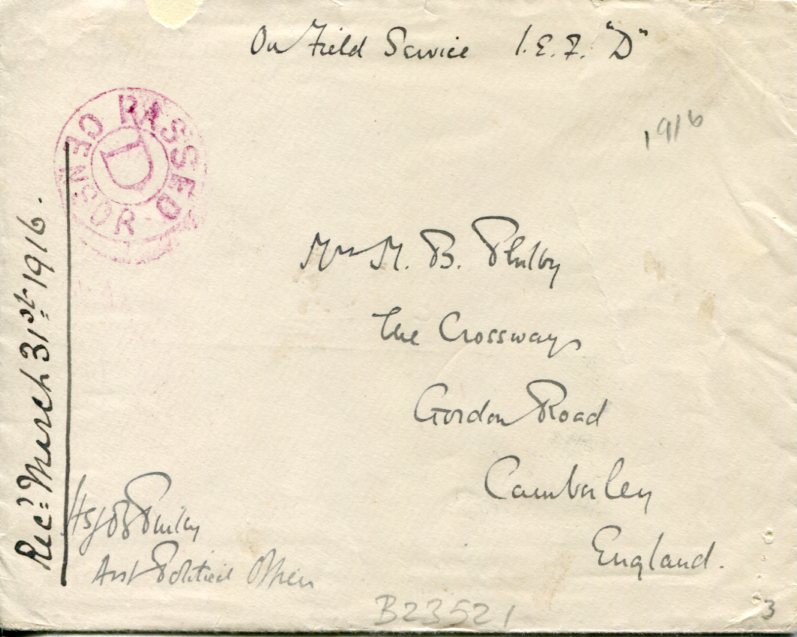 On Field Service I.E.F. "D"
PASSED
CENSOR
D
1916
Mrs M. B. Philby
The Crossways
Gordon Road
Camberley
England.
Recd. March 31st 1916.
HStJB Philby
Asst Political Officer
B23521
3